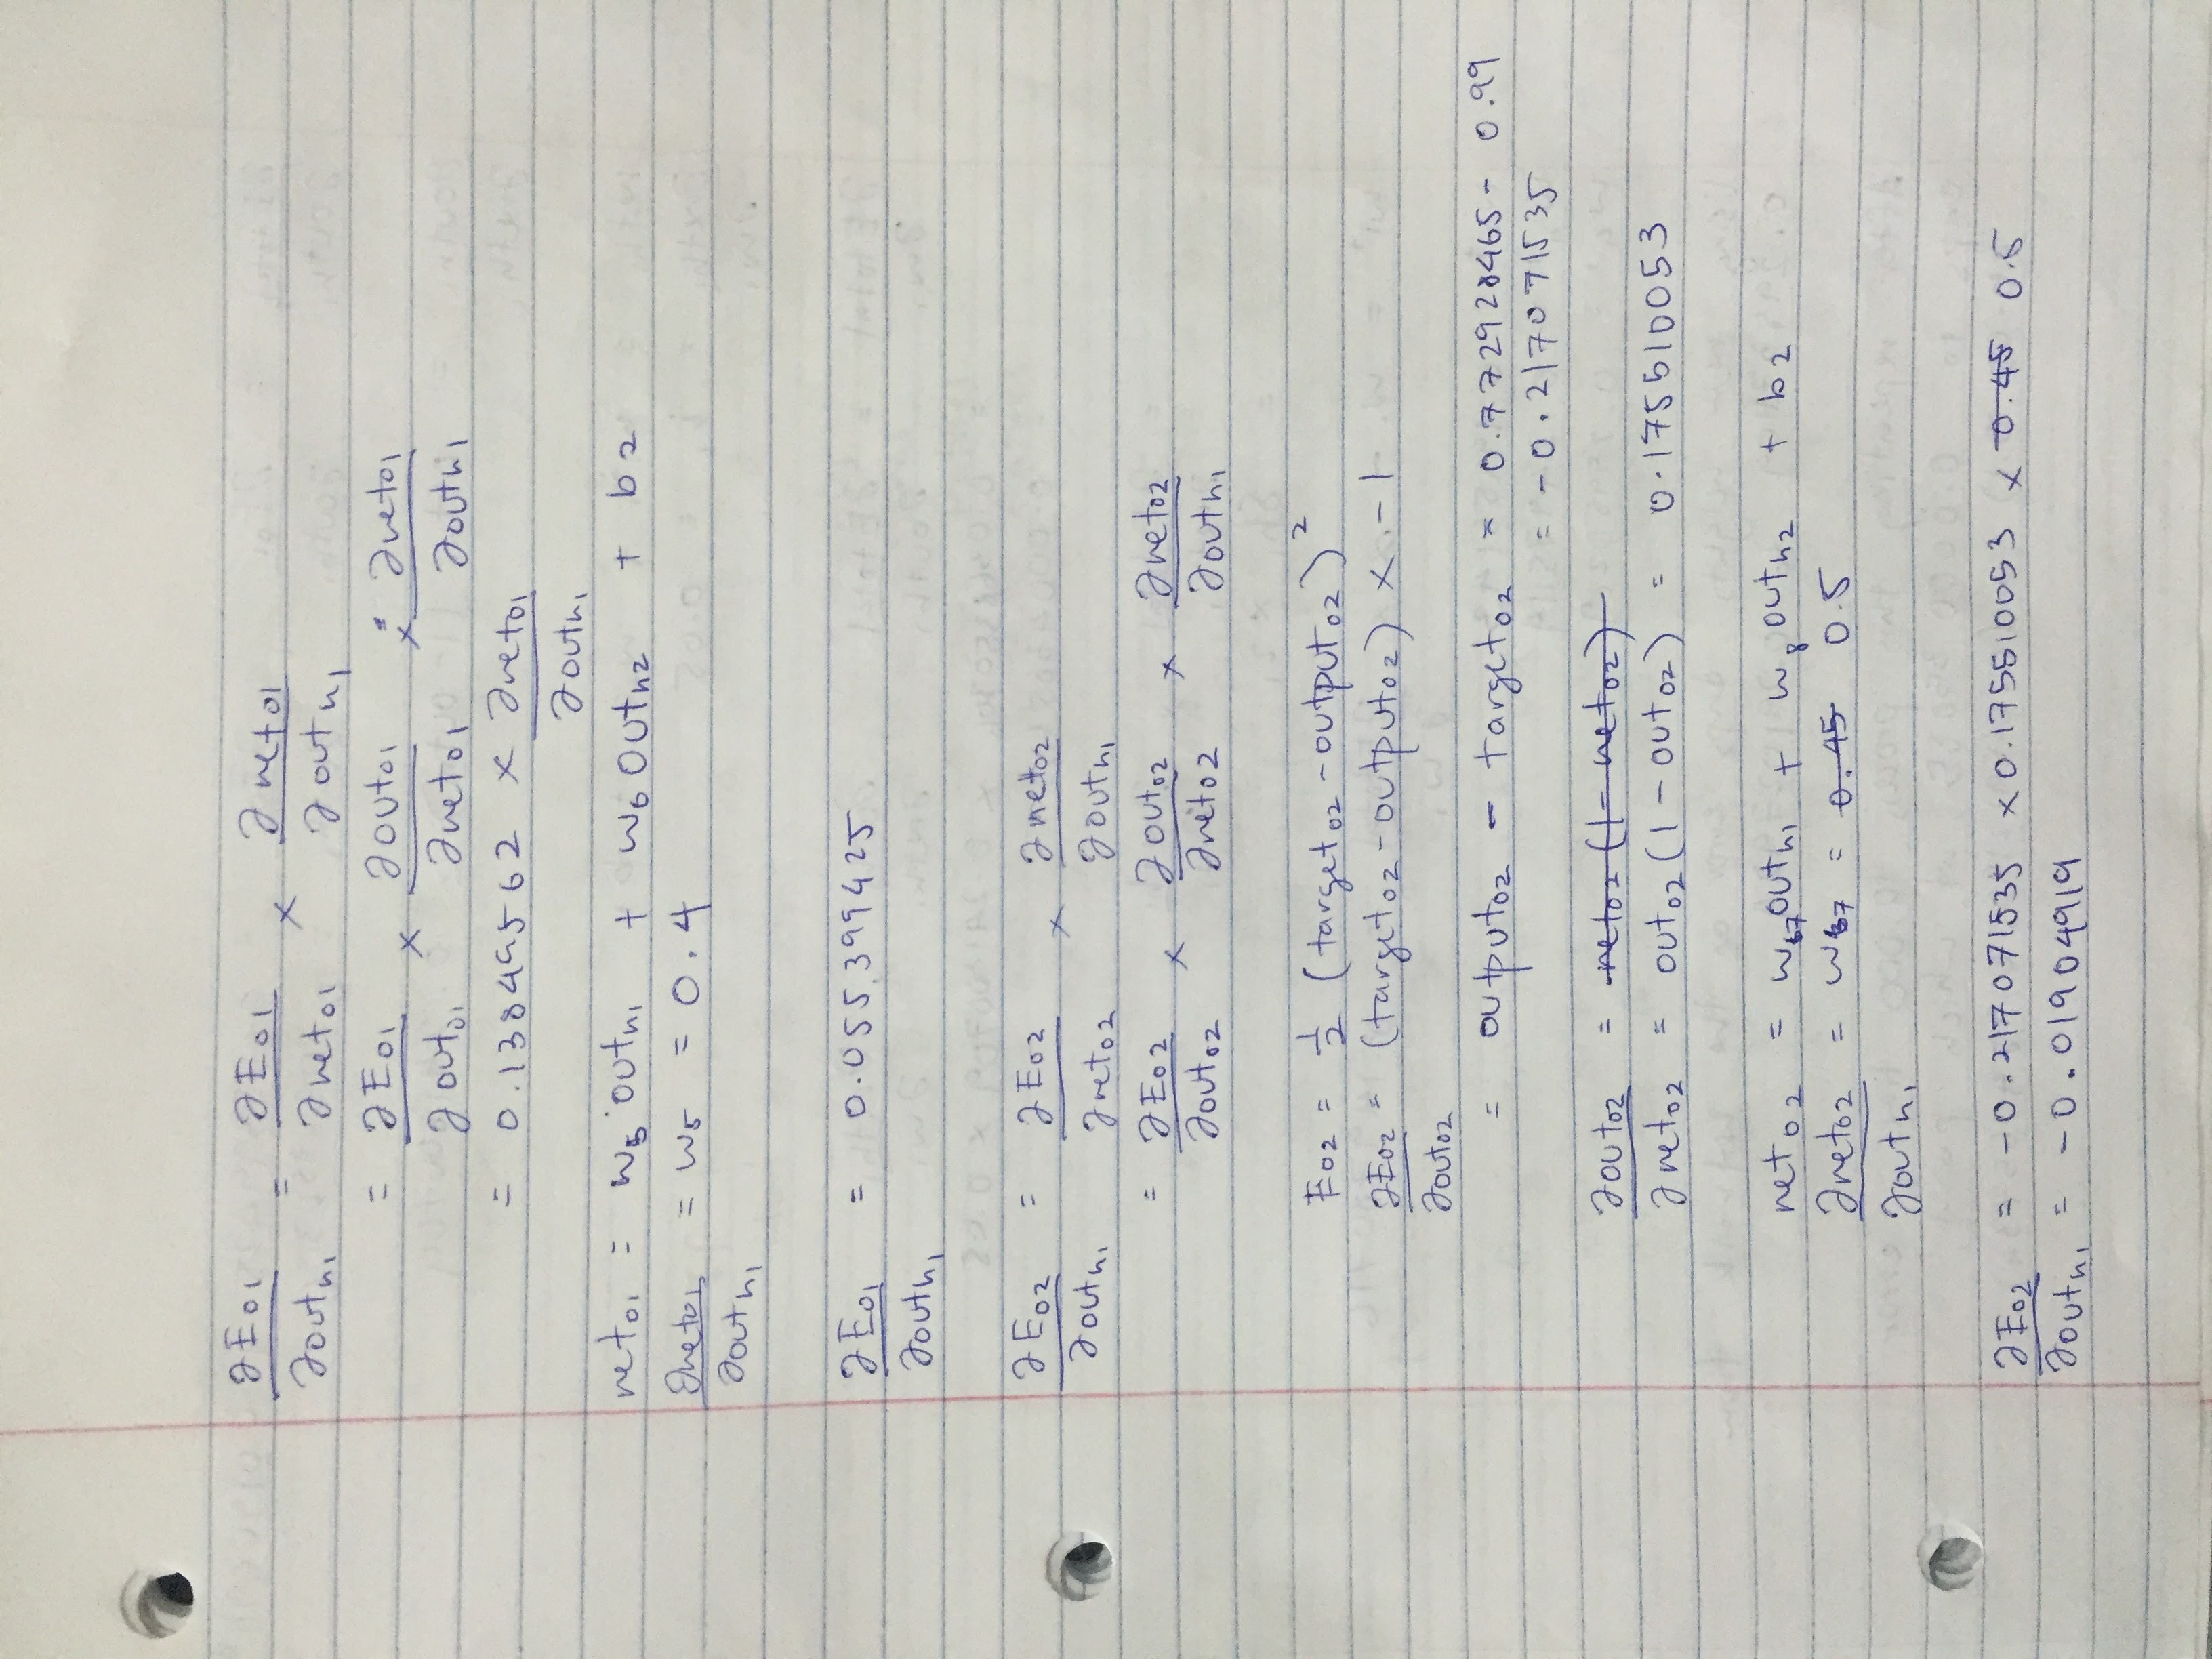 ∂E₀₁/∂outₕ₁ = ∂E₀₁/∂net₀₁ × ∂net₀₁/∂outₕ₁
= ∂E₀₁/∂out₀₁ × ∂out₀₁/∂net₀₁ × ∂net₀₁/∂outₕ₁
= 0.13849562 × ∂net₀₁/∂outₕ₁
net₀₁ = w₅ outₕ₁ + w₆ outₕ₂ + b₂
∂net₀₁/∂outₕ₁ = w₅ = 0.4
∂E₀₁/∂outₕ₁ = 0.055399425
∂E₀₂/∂outₕ₁ = ∂E₀₂/∂net₀₂ × ∂net₀₂/∂outₕ₁
= ∂E₀₂/∂out₀₂ × ∂out₀₂/∂net₀₂ × ∂net₀₂/∂outₕ₁
E₀₂ = 1/2 (target₀₂ - output₀₂)²
∂E₀₂/∂out₀₂ = (target₀₂ - output₀₂) × -1
= output₀₂ - target₀₂ = 0.772928465 - 0.99
= -0.217071535
∂out₀₂/∂net₀₂ = net₀₂ (1 - net₀₂)
= out₀₂ (1 - out₀₂) = 0.175510053
net₀₂ = w₇ outₕ₁ + w₈ outₕ₂ + b₂
∂net₀₂/∂outₕ₁ = w₇ = 0.45 0.5
∂E₀₂/∂outₕ₁ = -0.217071535 × 0.175510053 × 0.45 0.5
= -0.01904919